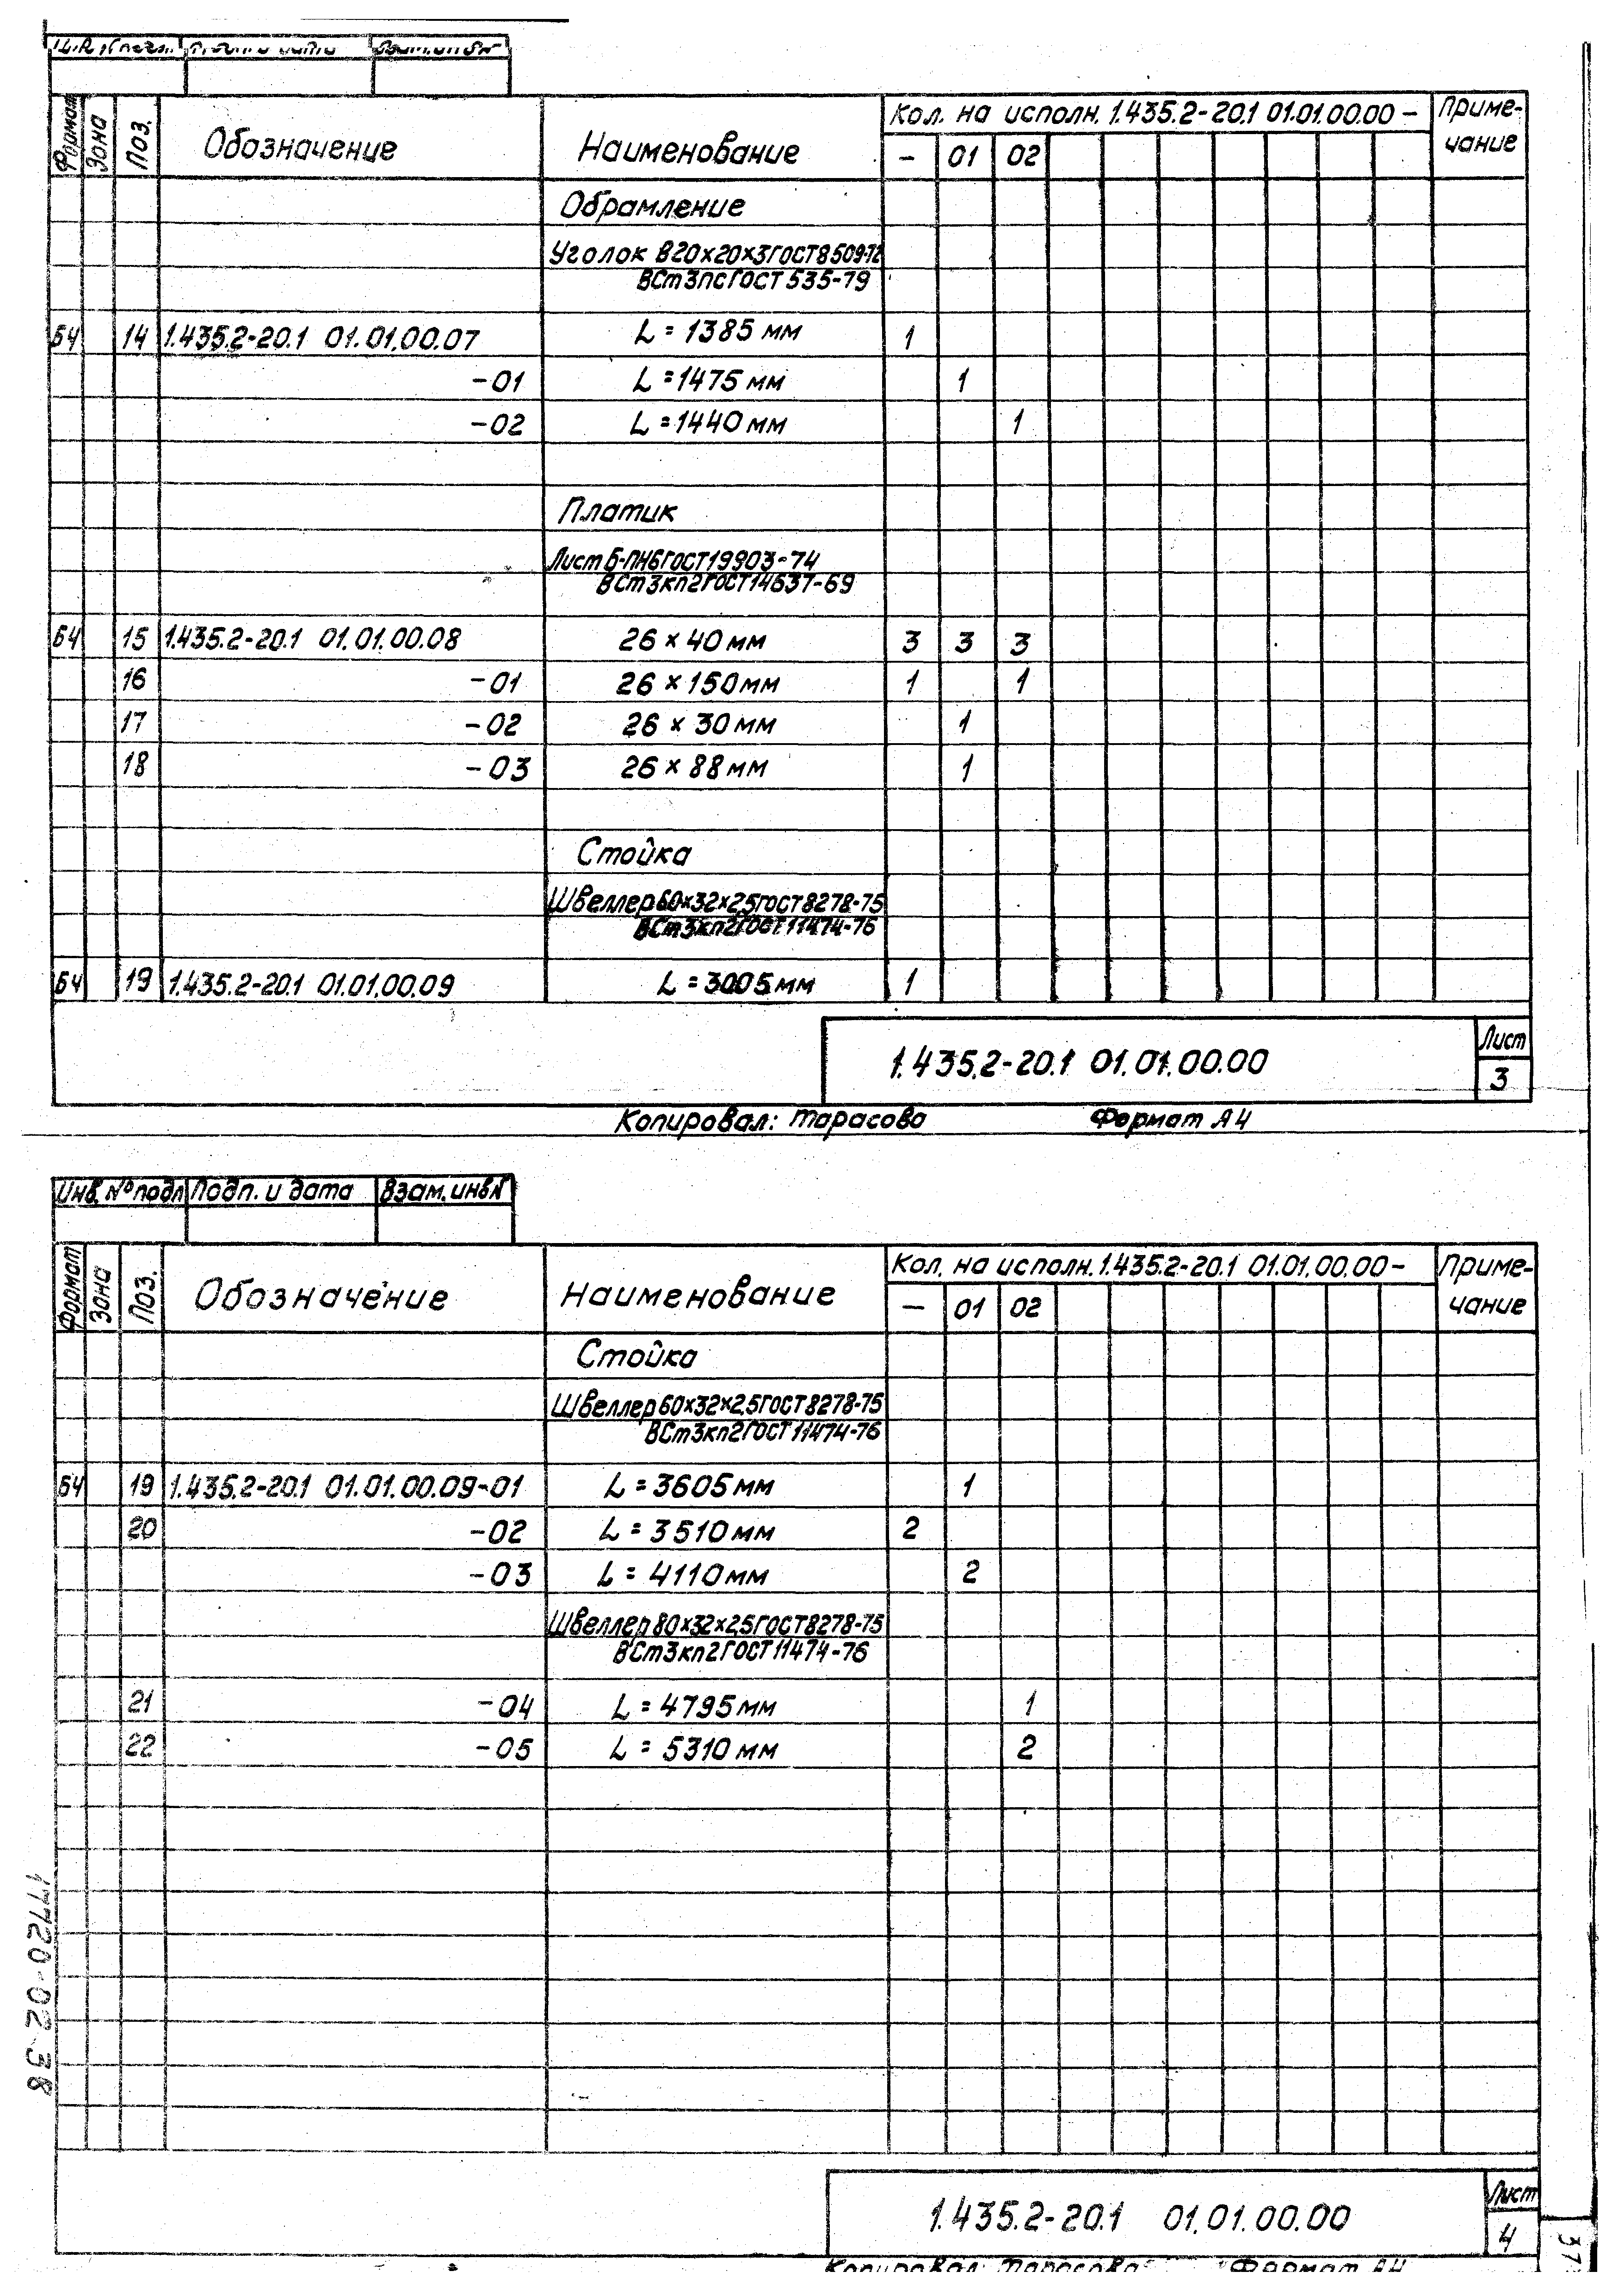 Формат Зона Поз. Обозначение Наименование Кол. на исполн. 1.435.2-20.1 01.01.00.00 - Приме-чание
- 01 02
Обрамление
Уголок В20×20×3 ГОСТ 8509-72
ВСт3пс ГОСТ 535-79
БЧ 14 1.435.2-20.1 01.01.00.07 L = 1385 мм 1
-01 L = 1475 мм 1
-02 L = 1440 мм 1
Платик
Лист Б-ПН6 ГОСТ 19903-74
ВСт3кп2 ГОСТ 14637-69
БЧ 15 1.435.2-20.1 01.01.00.08 26 × 40 мм 3 3 3
16 -01 26 × 150 мм 1 1
17 -02 26 × 30 мм 1
18 -03 26 × 88 мм 1
Стойка
Швеллер 60×32×2,5 ГОСТ 8278-75
ВСт3кп2 ГОСТ 11474-76
БЧ 19 1.435.2-20.1 01.01.00.09 L = 3005 мм 1
1.435.2-20.1 01.01.00.00 Лист
3
Копировал: Тарасова Формат А4
Инв. № подл Подп. и дата Взам. инв. №
Формат Зона Поз. Обозначение Наименование Кол. на исполн. 1.435.2-20.1 01.01.00.00 - Приме-чание
- 01 02
Стойка
Швеллер 60×32×2,5 ГОСТ 8278-75
ВСт3кп2 ГОСТ 11474-76
БЧ 19 1.435.2-20.1 01.01.00.09-01 L = 3605 мм 1
20 -02 L = 3510 мм 2
-03 L = 4110 мм 2
Швеллер 80×32×2,5 ГОСТ 8278-75
ВСт3кп2 ГОСТ 11474-76
21 -04 L = 4795 мм 1
22 -05 L = 5310 мм 2
17720-02 38
1.435.2-20.1 01.01.00.00 Лист
4
37
Копировал: Тарасова Формат А4